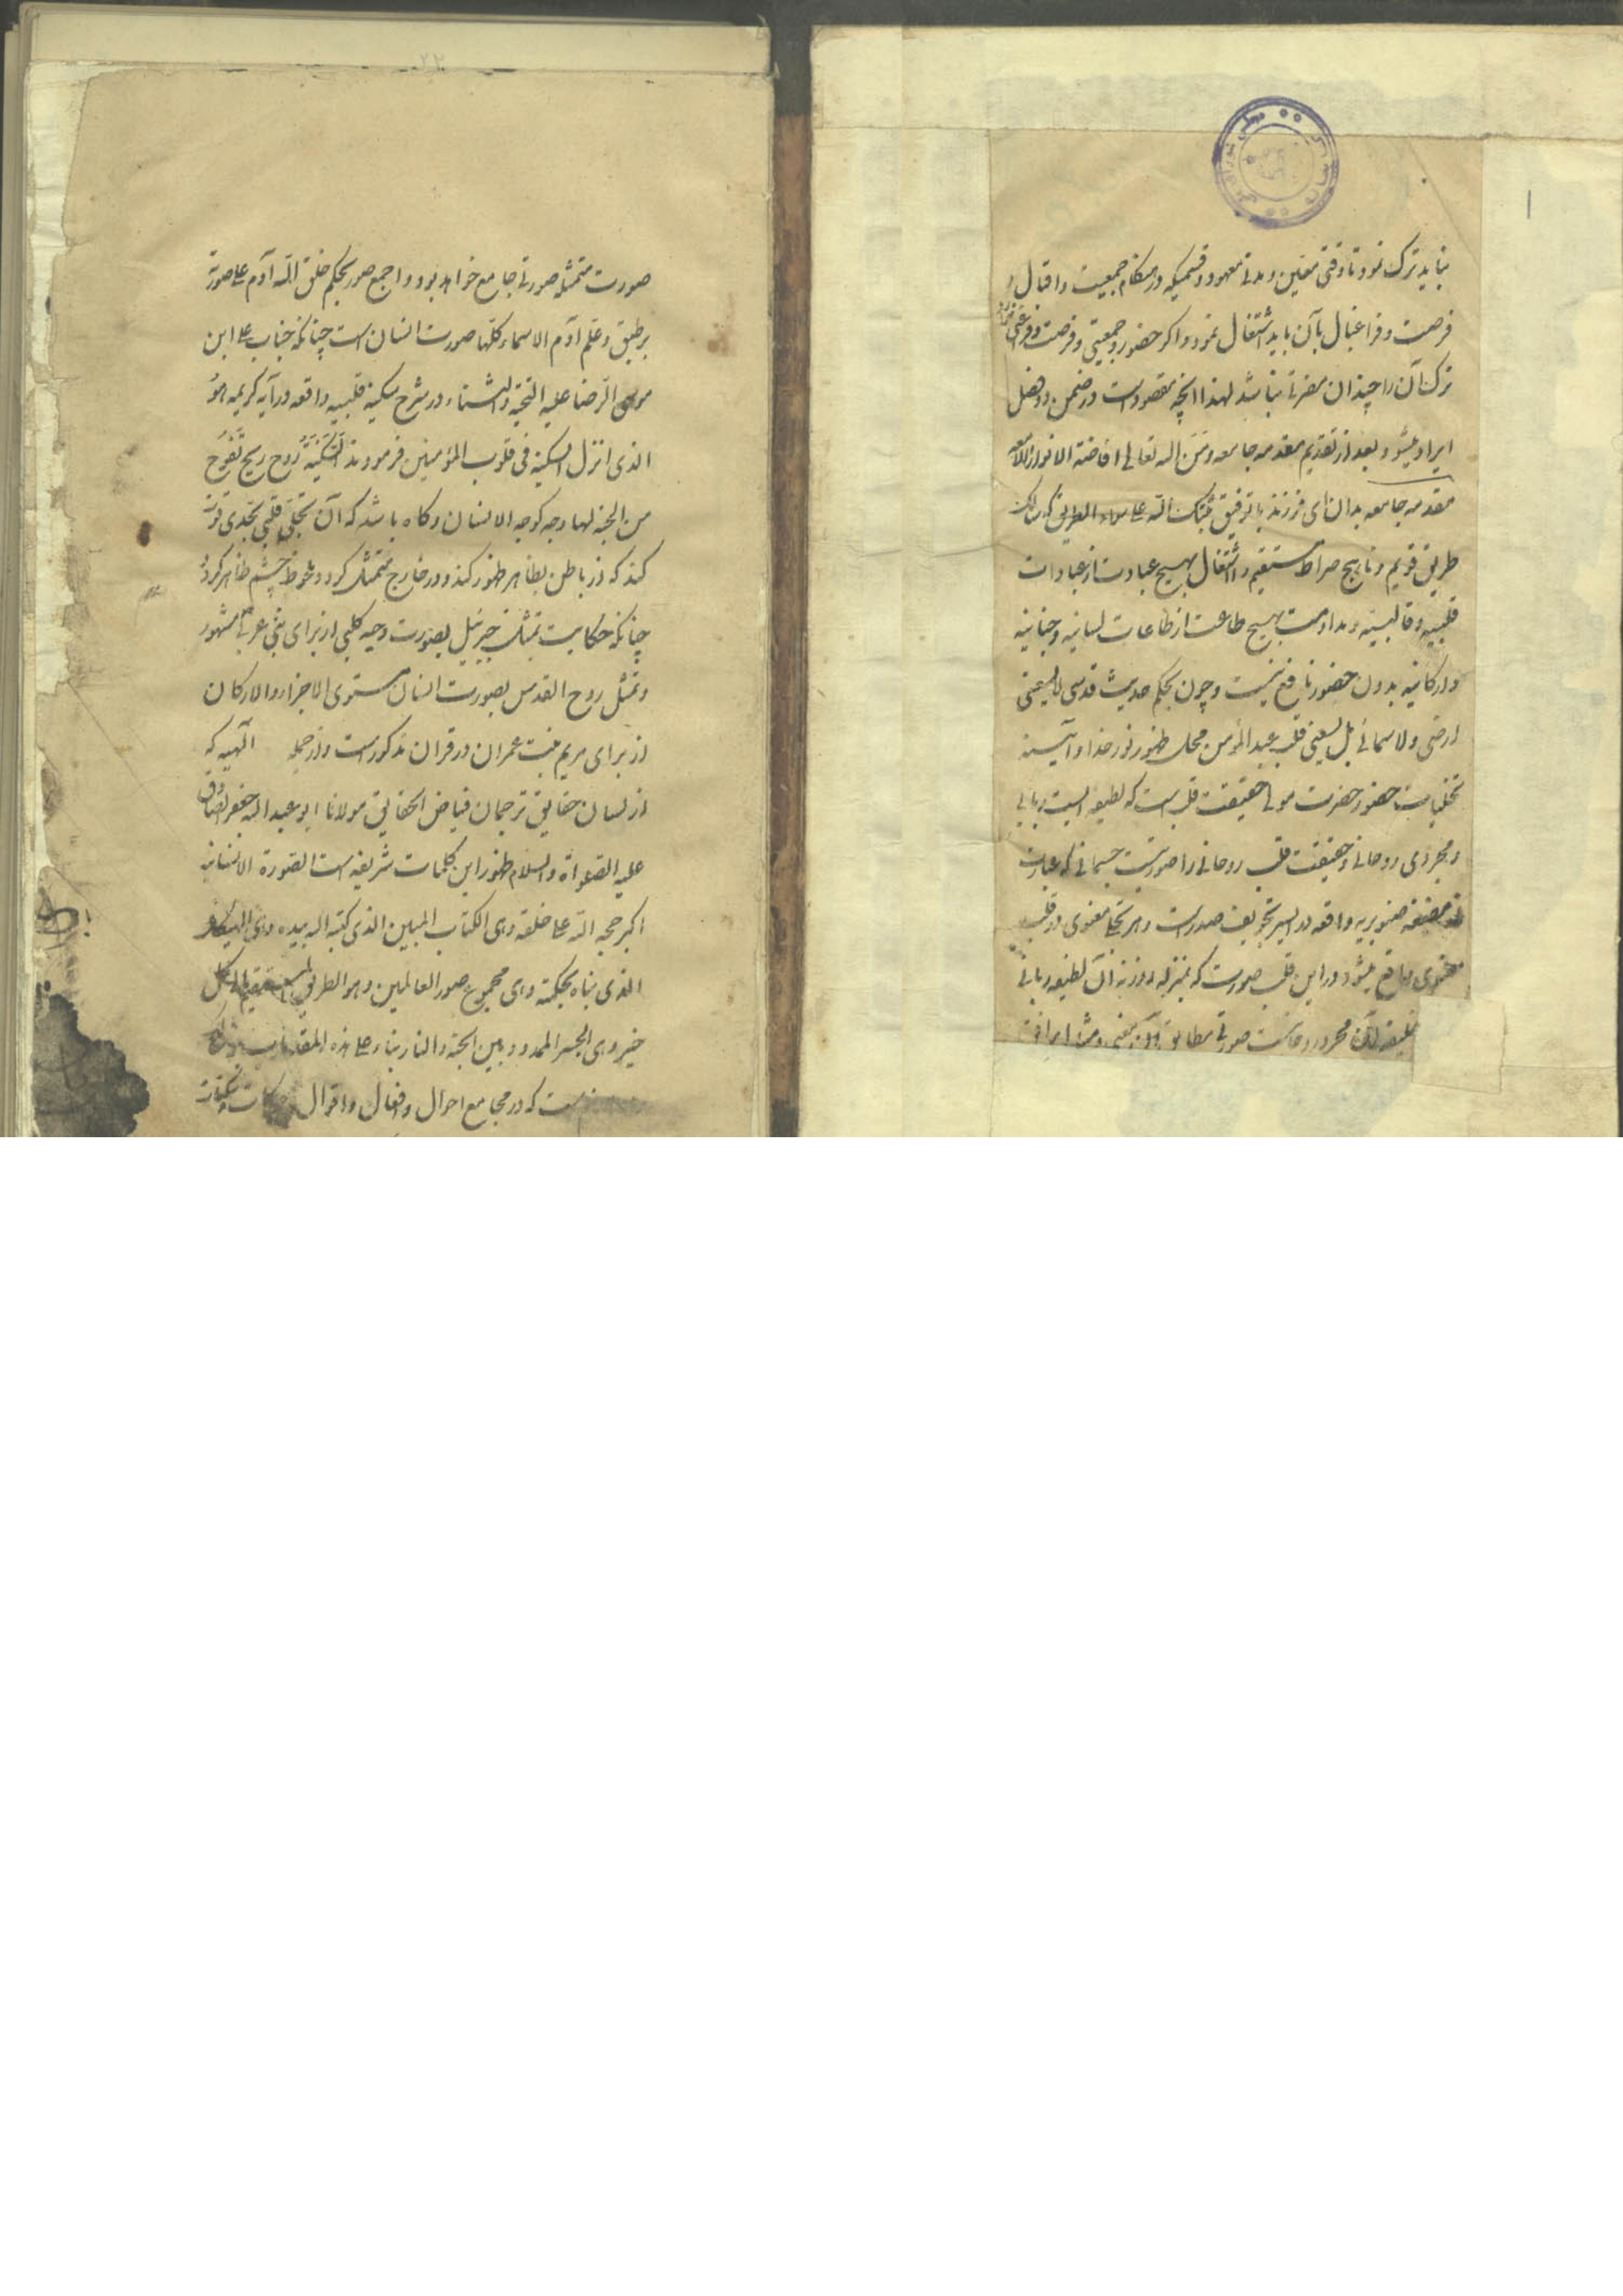 نباید ترک نمود تا وقتی معین و مدتی معهود و قسمیکه در هنکام جمعیت و اقبال و
فرصت و فراغبال بآن باید اشتغال نمود و اکر حضور و جمعیتی و فرصت و فراغتی
ترک آن را چندان مضرتی نباشد لهذا انچه مقصود است در ضمن دو فصل
ایراد میشود بعد از تقدیم مقدمه جامعه و من الله تعالی افاضة الانوار
مقدمه جامعه بدان ای فرزند با توفیق ثبتک الله علی سواء الطریق که سالک
طریق قویم و ناهج صراط مستقیم را اشتغال بهیچ عبادت از عبادات
قلبیه و قالبیه و مداومت بهیچ طاعت از طاعات لسانیه و جنانیه
و ارکانیه بدون حضور نافع نیست و چون بحکم حدیث قدسی لا یسعنی
ارضی و لا سمائی بل یسعنی قلب عبد المؤمن محل ظهور نور خدا و آیینه
تجلیات حضور حضرت مولی حقیقت قلب است که لطیفه ایست ربانی
و مجردی روحانی و حقیقت قلب روحانی را صورتیست جسمانی که عبارت
از مضغه صنوبریه واقعه در ایسر تجویف صدر است و هر تجلی معنوی در قلب
معنوی واقع میشود در این قلب صورت که بمنزله روزنه آن لطیفه ربانی
آن مجرد روحانیست صورتی مطابق آن معنی
صورت متمثله صورتی جامع خواهد بود و اجمع صور بحکم خلق الله آدم علی صورته
بر طبق و علم آدم الاسماء کلها صورت انسان است چنانکه جناب علی ابن
موسی الرضا علیه التحیة و الثناء در شرح سکینه قلبیه واقعه در آیه کریمه هو
الذی انزل السکینة فی قلوب المؤمنین فرمودند السَّکینَةُ رُوح ریح تَفُوحُ
من الجنة لها وجه کوجه الانسان و کاه باشد که آن تجلی قلبی بحدی قوت
کند که از باطن بظاهر ظهور کند و در خارج متمثل کردد و ملحوظ چشم ظاهر کردد
چنانکه حکایت تمثل جبرئیل بصورت دحیه کلبی از برای نبی عربی مشهور
و تمثل روح القدس بصورت انسان مستوی الاجزاء و الارکان
از برای مریم بنت عمران در قران مذکور است و از جمله الهیه که
از لسان حقایق ترجمان فیاض الحقایق مولانا ابو عبد الله جعفر الصادق
علیه الصلواة و السلام ظهور این کلمات شریفه است الصورة الانسانیة
اکبر حجة الله علی خلقه و هی الکتاب المبین الذی کتبه الله بیده و هی الهیکل
الذی بناه بحکمته و هی مجموع صور العالمین و هو الطریق المستقیم الی کل
خیر و هی الجسر الممدود بین الجنة و النار بناء علی هذه المقدمات
ست که در مجامع احوال و افعال و اقوال